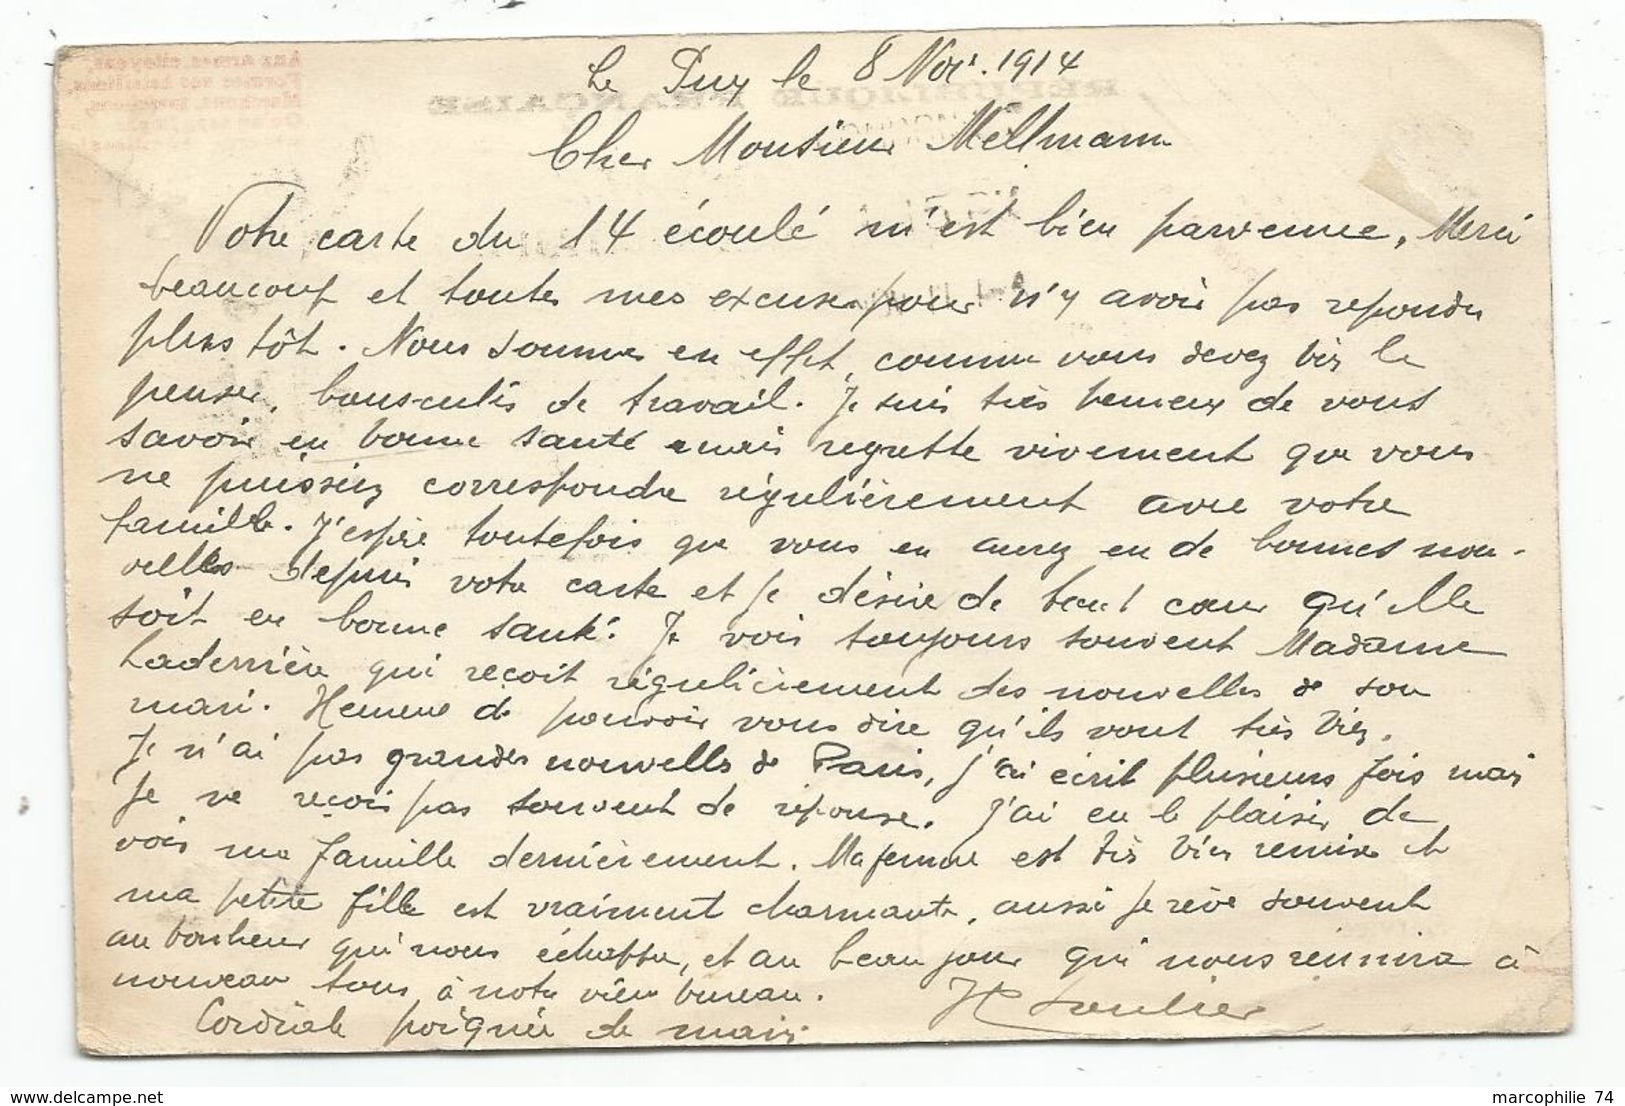 Le Puy le 8 Nov. 1914
Cher Monsieur Mellmann
Votre carte du 14 écoulé m'est bien parvenue. Merci
beaucoup et toutes mes excuses pour n'y avoir pas repondu
plus tôt. Nous sommes en effet, comme vous devez bien le
penser, bousculés de travail. Je suis très heureux de vous
savoir en bonne santé mais regrette vivement que vous
ne puissiez correspondre régulièrement avec votre
famille. J'espère toutefois que vous en aurez eu de bonnes nou-
velles depuis votre carte et je désire de tout cœur qu'elle
soit en bonne santé. Je vois toujours souvent Madame
Laderrière qui reçoit régulièrement des nouvelles de son
mari. Heureux de pouvoir vous dire qu'ils vont très bien.
Je n'ai pas grandes nouvelles de Paris, j'ai écrit plusieurs fois mais
je ne reçois pas souvent de réponse. J'ai eu le plaisir de
voir ma famille dernièrement. Ma femme est très bien remise et
ma petite fille est vraiment charmante, aussi je rêve souvent
au bonheur qui nous échappe, et au beau jour qui nous réunira à
nouveau tous à notre vieux bureau.
Cordiale poignée de main
H Soulier
REPUBLIQUE FRANÇAISE
Aux armes, citoyens,
Formez vos bataillons,
Marchons, marchons,
marcophilie 74